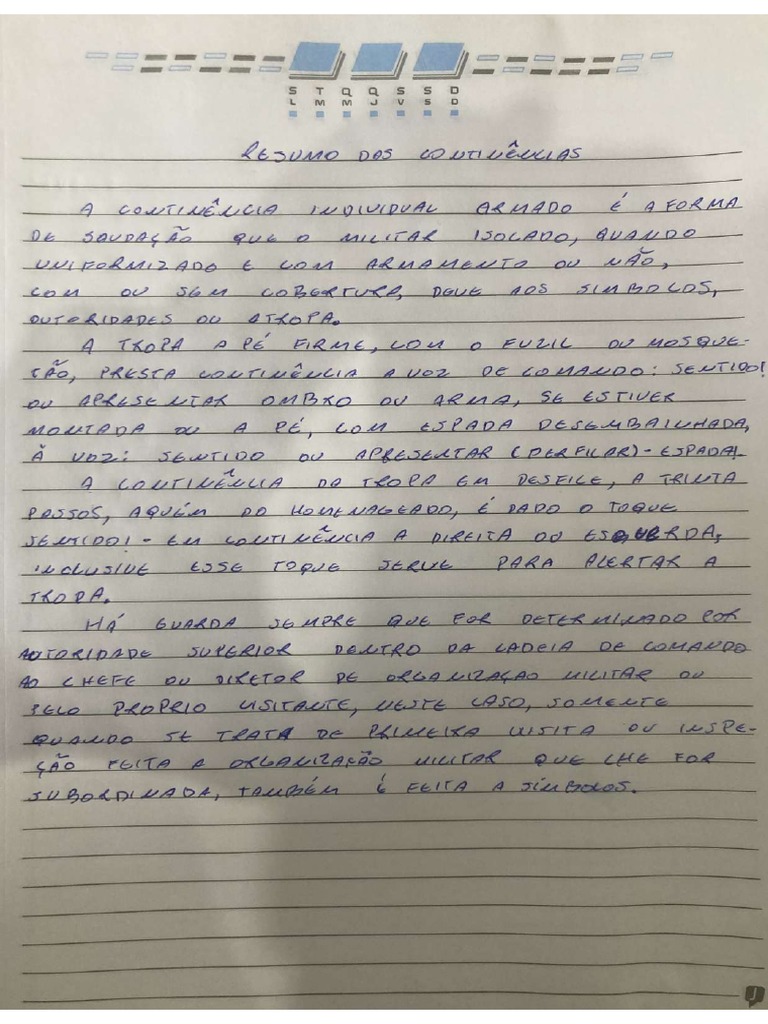 S T Q Q S S D
L M M J V S D
RESUMO DAS CONTINÊNCIAS
A CONTINÊNCIA INDIVIDUAL ARMADO É A FORMA
DE SAUDAÇÃO QUE O MILITAR ISOLADO, QUANDO
UNIFORMIZADO E COM ARMAMENTO OU NÃO,
COM OU SEM COBERTURA, DEVE AOS SIMBOLOS,
AUTORIDADES OU A TROPA.
A TROPA A PÉ FIRME, COM O FUZIL OU MOSQUE-
TÃO, PRESTA CONTINÊNCIA A VOZ DE COMANDO: SENTIDO!
OU APRESENTAR OMBRO OU ARMA, SE ESTIVER
MONTADA OU A PÉ, COM ESPADA DESEMBAINHADA,
À VOZ: SENTIDO OU APRESENTAR (PERFILAR)-ESPADA!.
A CONTINÊNCIA DA TROPA EM DESFILE, A TRINTA
PASSOS, AQUÉM DO HOMENAGEADO, É DADO O TOQUE
SENTIDO! - EM CONTINÊNCIA A DIREITA OU ESQUERDA,
INCLUSIVE ESSE TOQUE SERVE PARA ALERTAR A
TROPA.
HÁ GUARDA SEMPRE QUE FOR DETERMINADO POR
AUTORIDADE SUPERIOR DENTRO DA CADEIA DE COMANDO
AO CHEFE OU DIRETOR DE ORGANIZAÇÃO MILITAR OU
PELO PROPRIO VISITANTE, NESTE CASO, SOMENTE
QUANDO SE TRATA DE PRIMEIRA VISITA OU INSPE-
ÇÃO FEITA A ORGANIZAÇÃO MILITAR QUE LHE FOR
SUBORDINADA, TAMBÉM É FEITA A SÍMBOLOS.
J